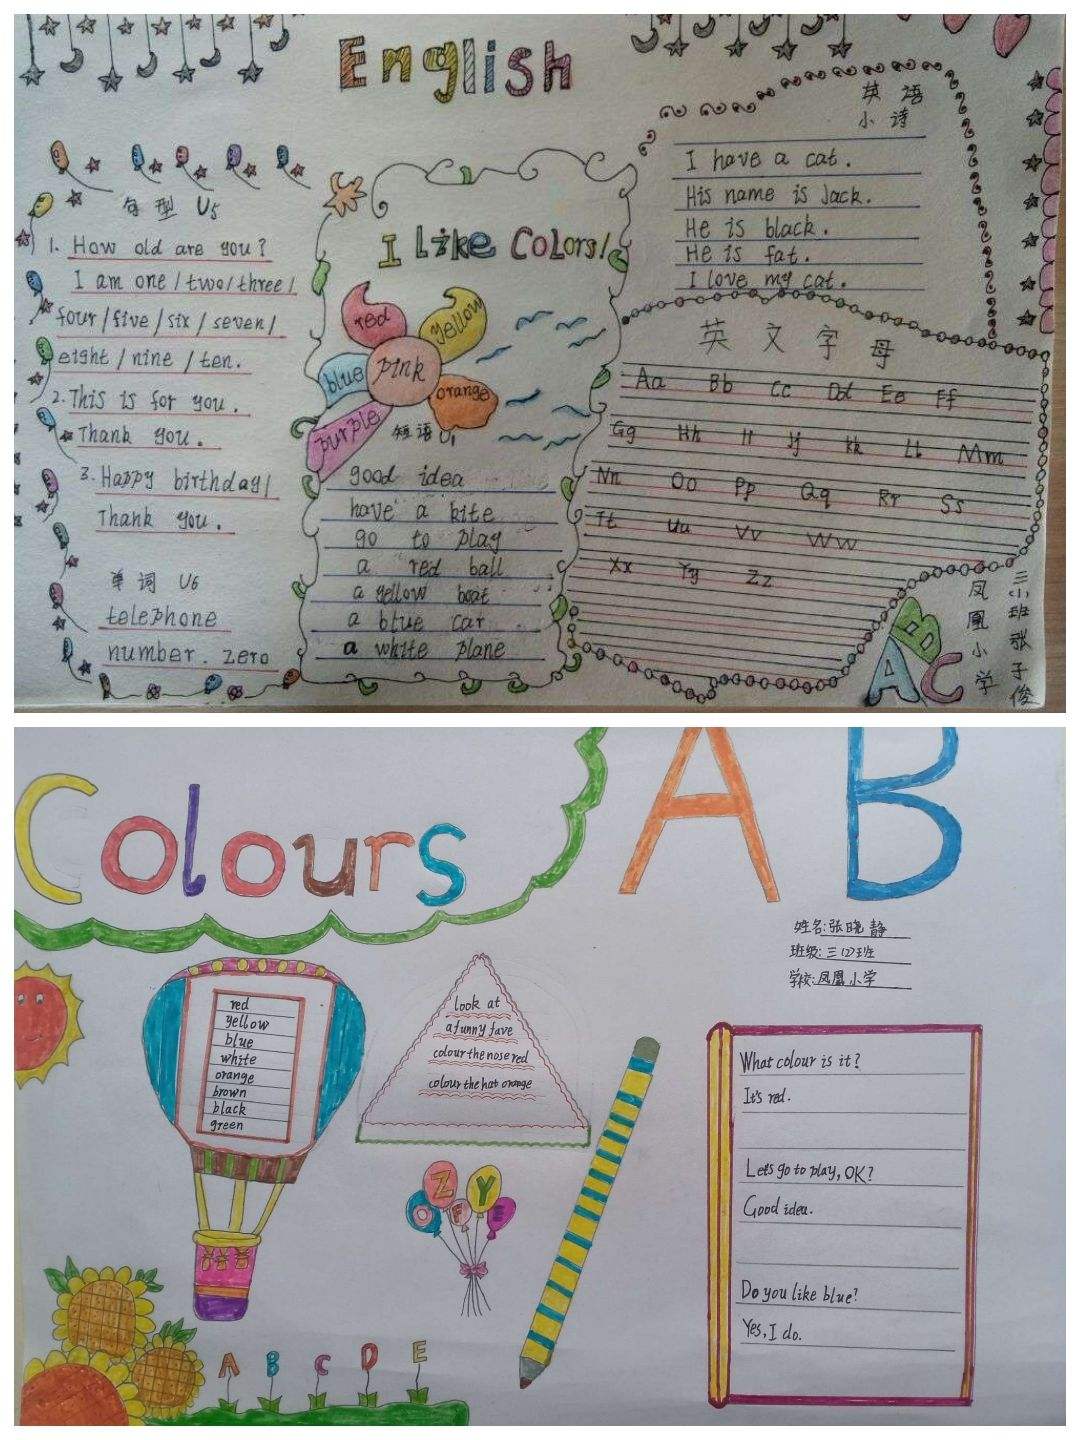 English
句型 U5
1. How old are you?
I am one/two/three/
four/five/six/seven/
eight/nine/ten.
2. This is for you.
Thank you.
3. Happy birthday!
Thank you.
单词 U6
telephone
number. zero
I Like Colors!
red
yellow
blue
pink
orange
purple
短语 U1
good idea
have a kite
go to play
a red ball
a yellow boat
a blue car
a white plane
英语
小诗
I have a cat.
His name is Jack.
He is black.
He is fat.
I love my cat.
英文字母
Aa Bb Cc Dd Ee Ff
Gg Hh Ii Jj Kk Ll Mm
Nn Oo Pp Qq Rr Ss
Tt Uu Vv Ww
Xx Yy Zz
ABC
三小班张子俊
凤凰小学
Colours
A B
姓名:张晓静
班级:三(2)班
学校:凤凰小学
red
yellow
blue
white
orange
brown
black
green
look at
a funny fave
colour the nose red
colour the hat orange
Z Y
O F E
A B C D E
What colour is it?
It's red.
Let's go to play, OK?
Good idea.
Do you like blue?
Yes, I do.